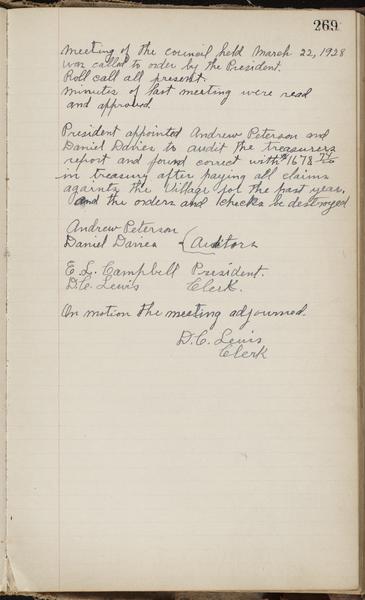 269
Meeting of the council held March 22, 1928
was called to order by the President.
Roll call all present.
Minutes of last meeting were read
and approved.
President appointed Andrew Peterson and
Daniel Davies to audit the treasurers
report and found correct with $1678
in treasury after paying all claims
againts the Village for the past year.
And the orders and checks be destroyed
Andrew Peterson
Daniel Davies { Auditors
E. L. Campbell President.
D.C. Lewis Clerk.
On motion the meeting adjourned.
D.C. Lewis
Clerk